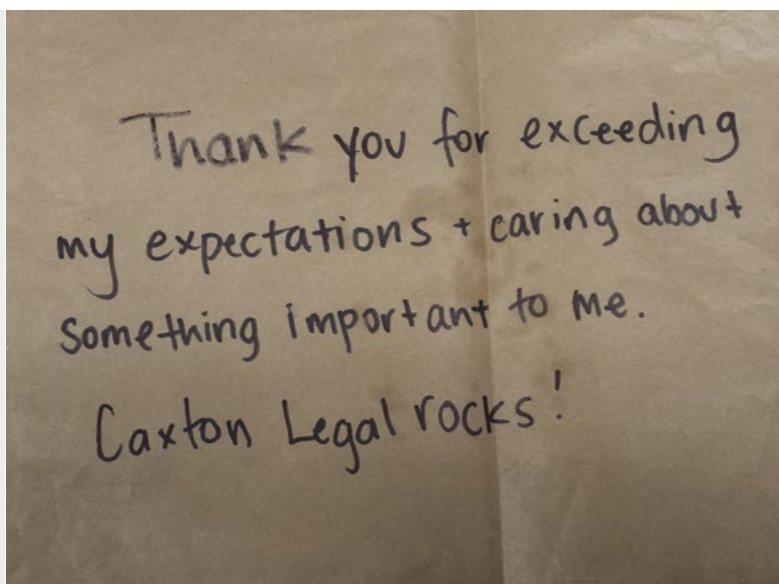 Thank you for exceeding
my expectations + caring about
something important to me.
Caxton Legal rocks!